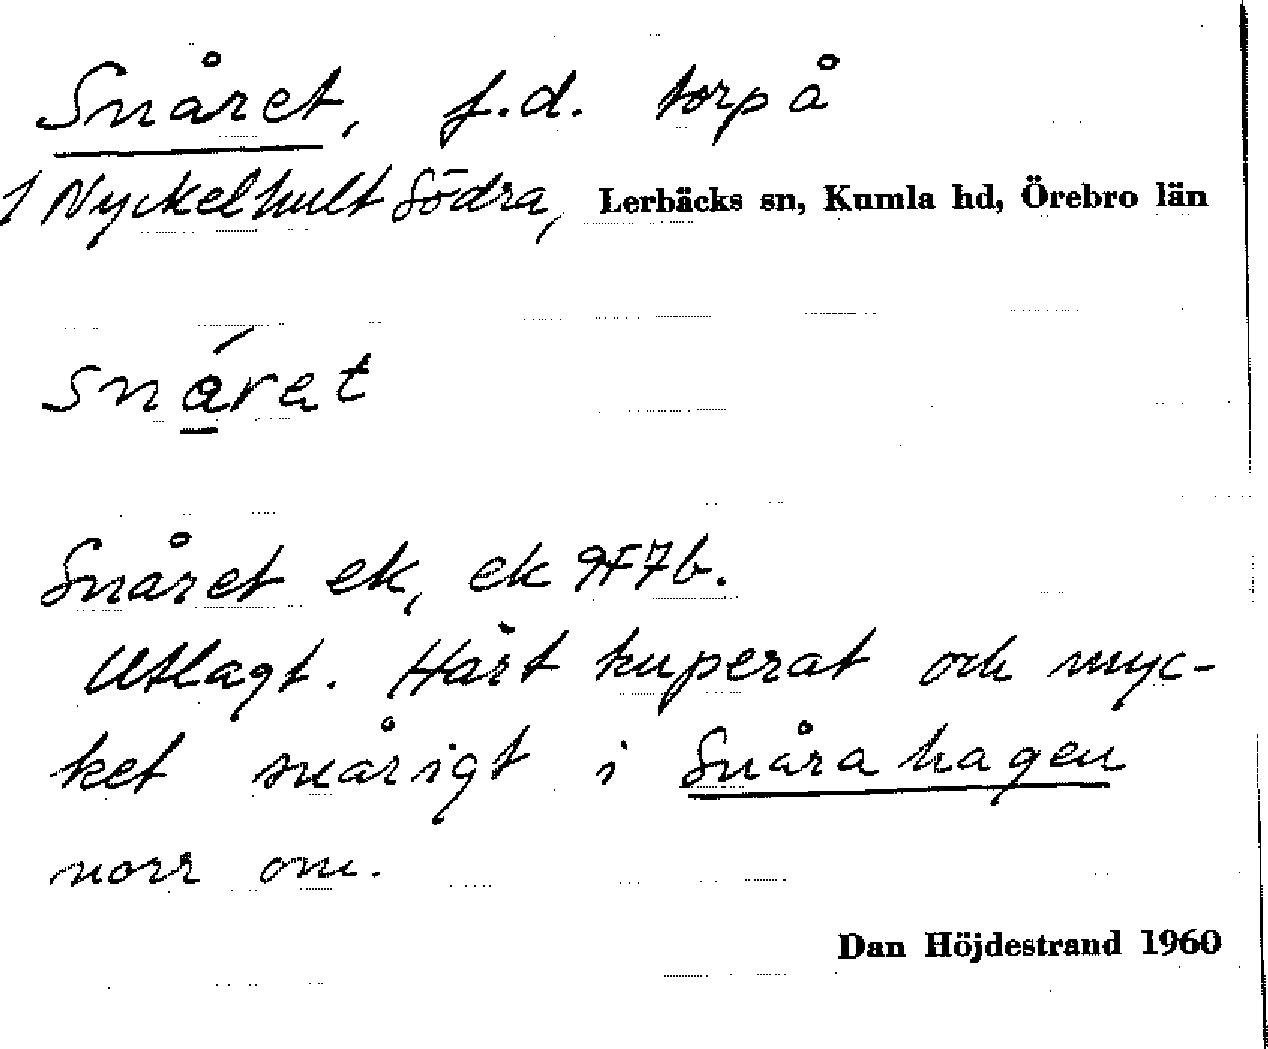 Snåret, f.d. torp å
1 Nyckelhult Södra, Lerbäcks sn, Kumla hd, Örebro län
snáret
Snåret ek, ek 9F7b.
Utlagt. Hårt kuperat och myc-
ket snårigt i Snårahagen
norr om.
Dan Höjdestrand 1960